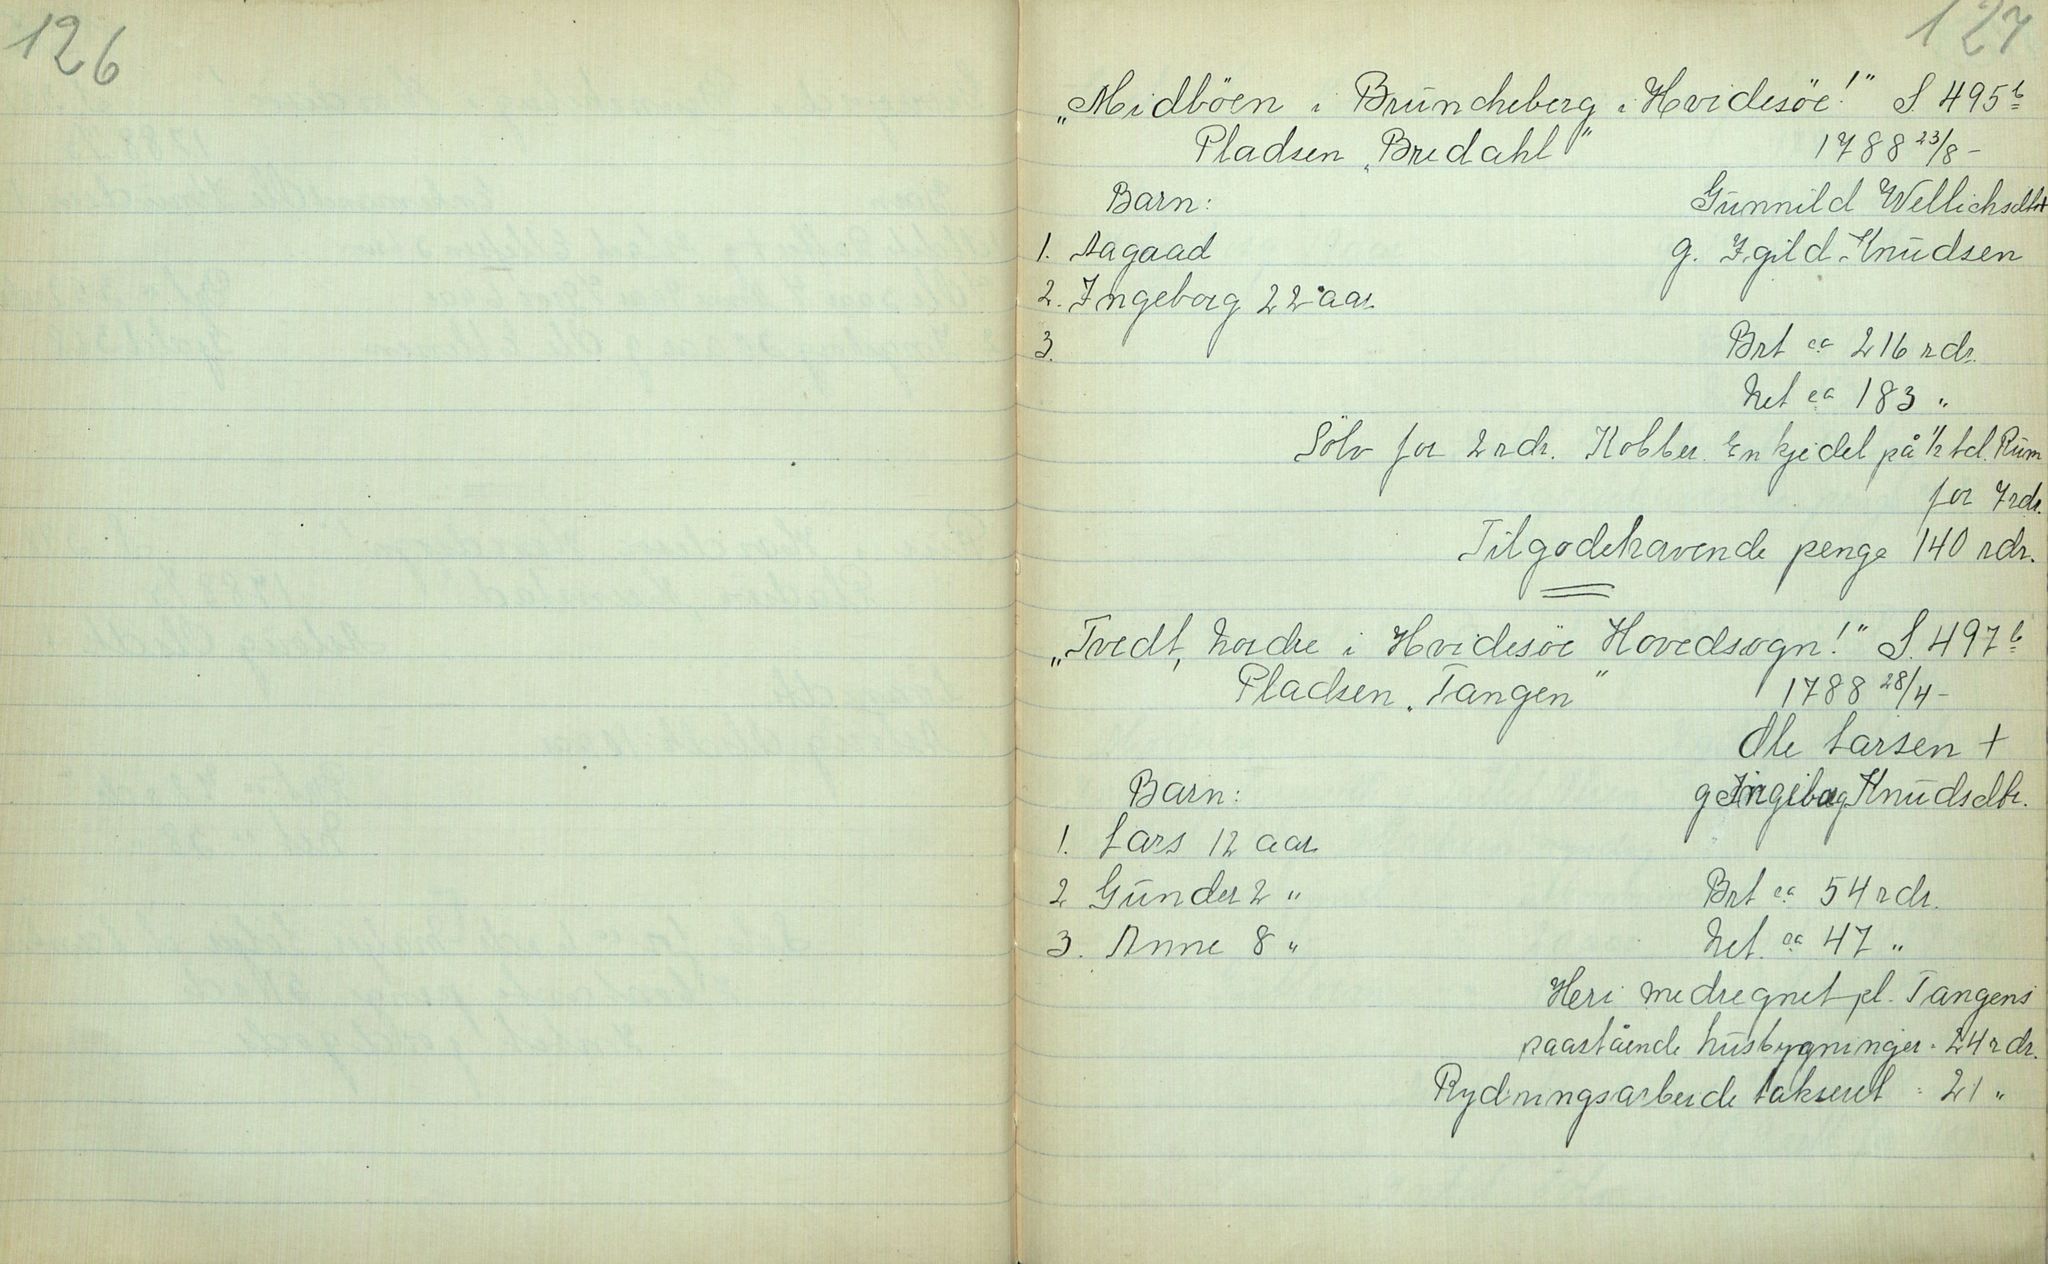 126
127
„Midböen i Brŭncheberg i Hvidesöe!” S. 495 b
Pladsen „Bredahl” 1788 23/8 -
Barn: Gŭnnild Wellichsdtr +
1. Aagaad g. Igild Knŭdsen
2. Ingeborg 22 aar
3. Brt ca 216 rdr.
Net ca 183 „
Sölv for 2 rdr. Kobber. En kjedel på 1/2 td. Rŭm
for 7 rdr.
Tilgodehavende penge 140 rdr.
„Tvedt, Nordre i Hvidesöe Hovedsogn!” S. 497 b
Pladsen „Tangen” 1788 28/4 -
Ole Larsen +
Barn: g Ingebog Knŭdsdtr.
1. Lars 12 aar
2 Gŭnder 2 „ Brt ca 54 rdr.
3. Anne 8 „ Net. ca 47 „
Heri medregnet pl. Tangens
paastående hŭsbygninger = 24 rdr.
Rydningsarbeide takseret = 21 „